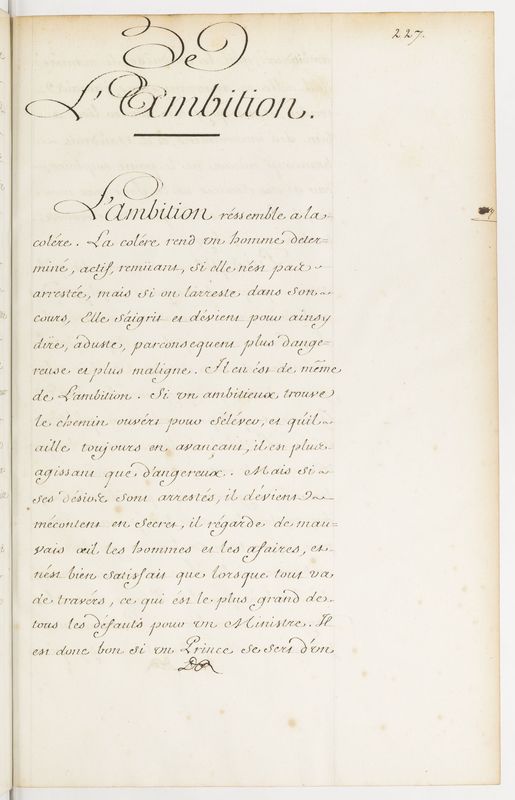 227.
De
L'Ambition.
L'ambition réssemble a la
colére. La colére rend vn homme deter=
miné, actif, remüant, si elle n'est pas
arrestée, mais si on l'arreste dans son
cours, Elle s'áigrit et dévient pour ainsy
dire, aduste, parconsequent plus dange=
reuse et plus maligne. Il en ést de même
de L'ambition. Si vn ambitieux trouve
le chemin ouvért pour s'éléver, et qu'il
aille toujours en avançant, il est plus
agissant que dangereux. Mais si
ses désirs sont arrestés, il dévient
mécontent en secret, il régarde de mau=
vais œil les hommes et les afaires, et
n'ést bien satisfait que lorsque tout va
de travérs, ce qui ést le plus grand de
tous les défauts pour vn Ministre. Il
est donc bon si vn Prince se sert d'vn